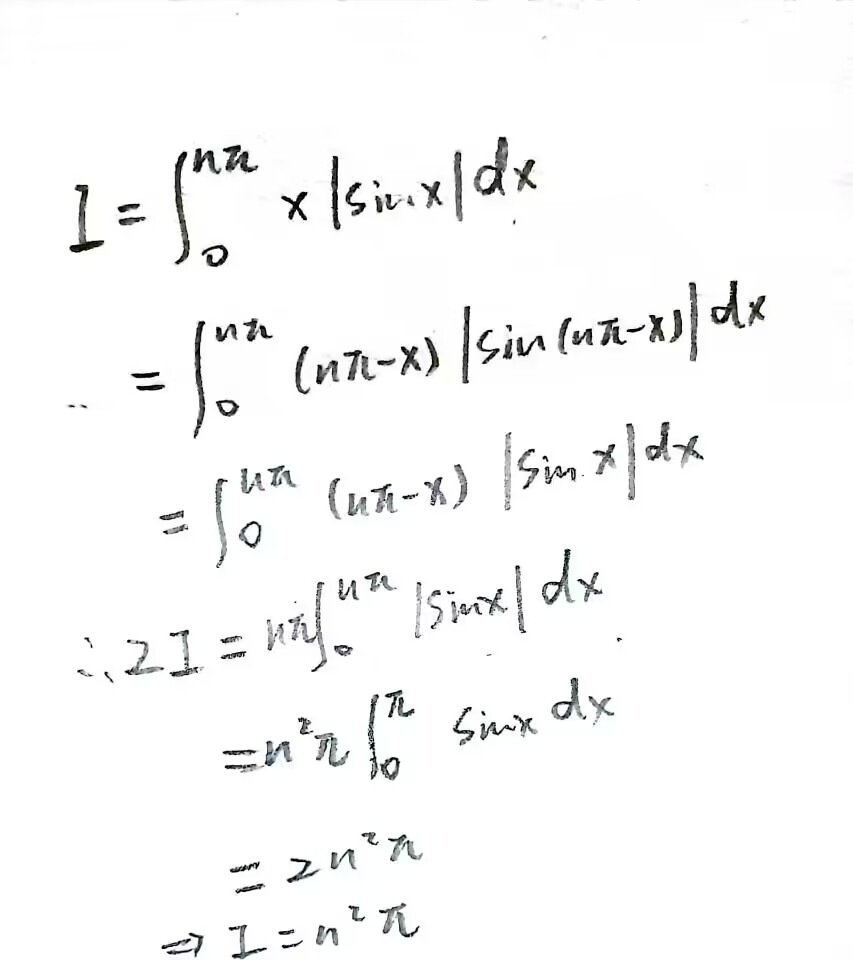 I = ∫₀^{nπ} x |sin x| dx
= ∫₀^{nπ} (nπ-x) |sin (nπ-x)| dx
= ∫₀^{nπ} (nπ-x) |sin x| dx
∴ 2I = nπ∫₀^{nπ} |sinx| dx
= n²π ∫₀^{π} sinx dx
= 2n²π
⇒ I = n²π